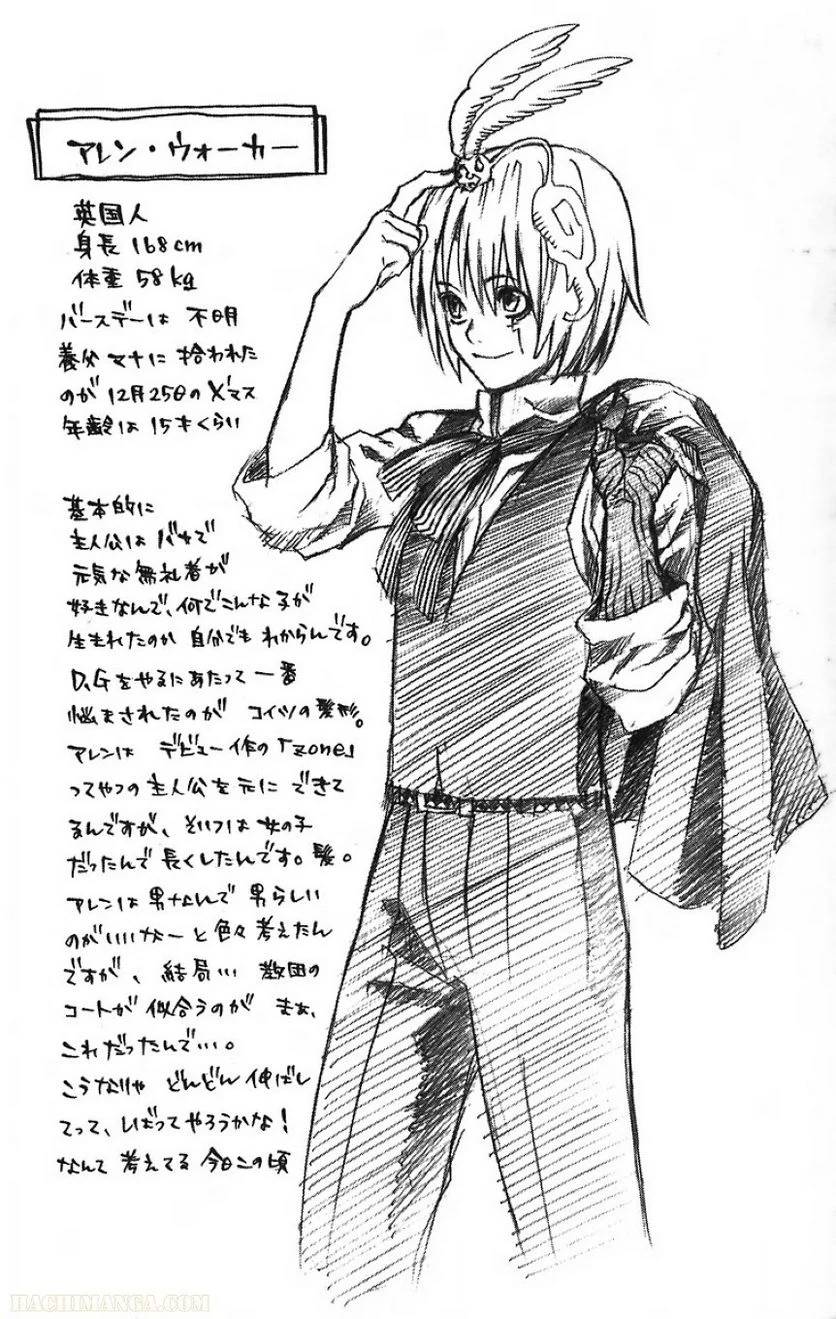 アレン・ウォーカー
英国人
身長 168cm
体重 58kg
バースデーは 不明
養父 マナに 拾われた
のが 12月25日の X'マス
年齢は 15才くらい
基本的に
主人公は バカで
元気な 無礼者が
好きなんで、何でこんな子が
生まれたのか 自分でも わからんです。
D,Gをやるにあたって 一番
悩まされたのが コイツの髪形。
アレンは デビュー作の「zone」
ってやつの 主人公を元に できて
るんですが、そいつは 女の子
だったんで 長くしたんです。髪。
アレンは 男なんで 男らしい
のがいいなーと 色々 考えたん
ですが、結局… 教団の
コートが 似合うのが まぁ、
これだったんで…。
こうなりゃ どんどん 伸ばし
てって、しばってやろうかな!
なんて 考えてる 今日この頃
HACHIMANGA.COM